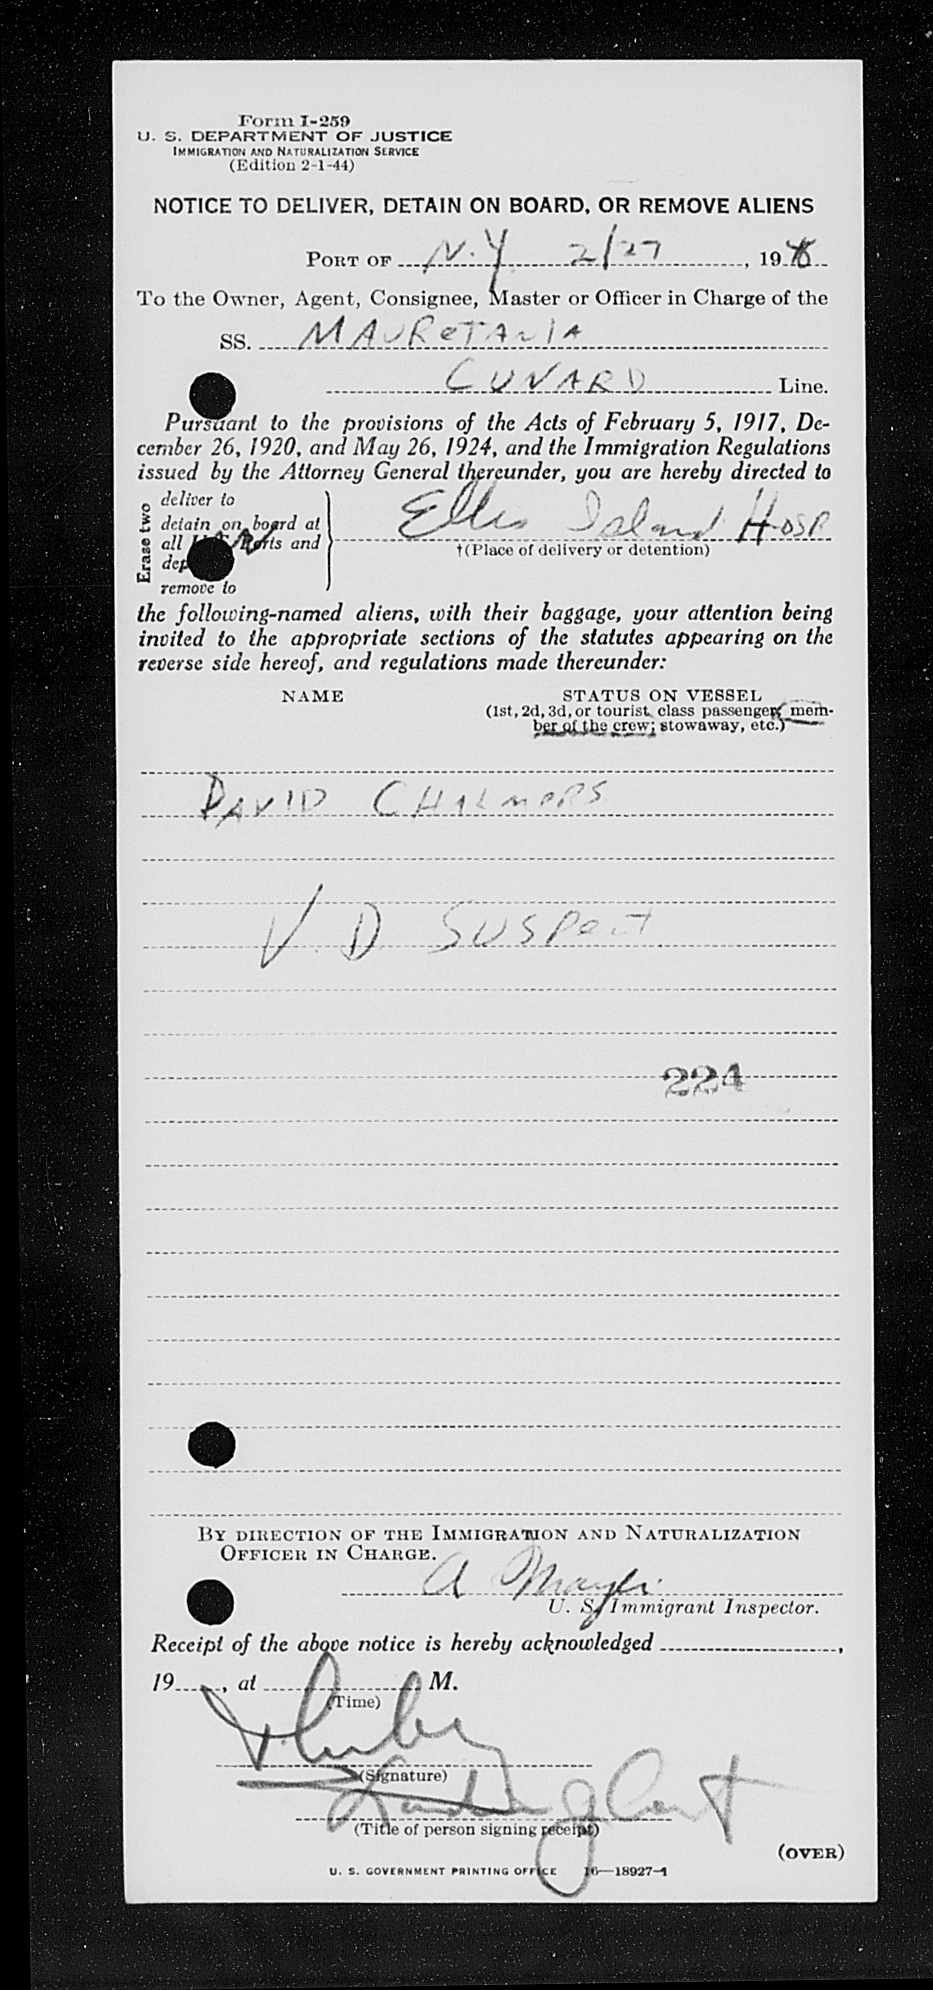 Form I-259
U. S. DEPARTMENT OF JUSTICE
IMMIGRATION AND NATURALIZATION SERVICE
(Edition 2-1-44)
NOTICE TO DELIVER, DETAIN ON BOARD, OR REMOVE ALIENS
PORT OF N.Y. 2/27, 19
To the Owner, Agent, Consignee, Master or Officer in Charge of the
SS. MAUReTANIA
CUNARD Line.
Pursuant to the provisions of the Acts of February 5, 1917, De-
cember 26, 1920, and May 26, 1924, and the Immigration Regulations
issued by the Attorney General thereunder, you are hereby directed to
Erase two
deliver to
detain on board at
all Ports and
remove to
Ellis Island Hosp
†(Place of delivery or detention)
the following-named aliens, with their baggage, your attention being
invited to the appropriate sections of the statutes appearing on the
reverse side hereof, and regulations made thereunder:
NAME STATUS ON VESSEL
(1st, 2d, 3d, or tourist class passenger; mem-
ber of the crew; stowaway, etc.)
DAVID CHALMERS
V.D SUSPect
224
BY DIRECTION OF THE IMMIGRATION AND NATURALIZATION
OFFICER IN CHARGE.
A
U. S. Immigrant Inspector.
Receipt of the above notice is hereby acknowledged ,
19 , at M.
(Time)
(Signature)
(Title of person signing receipt)
(OVER)
U. S. GOVERNMENT PRINTING OFFICE 16—18927-1